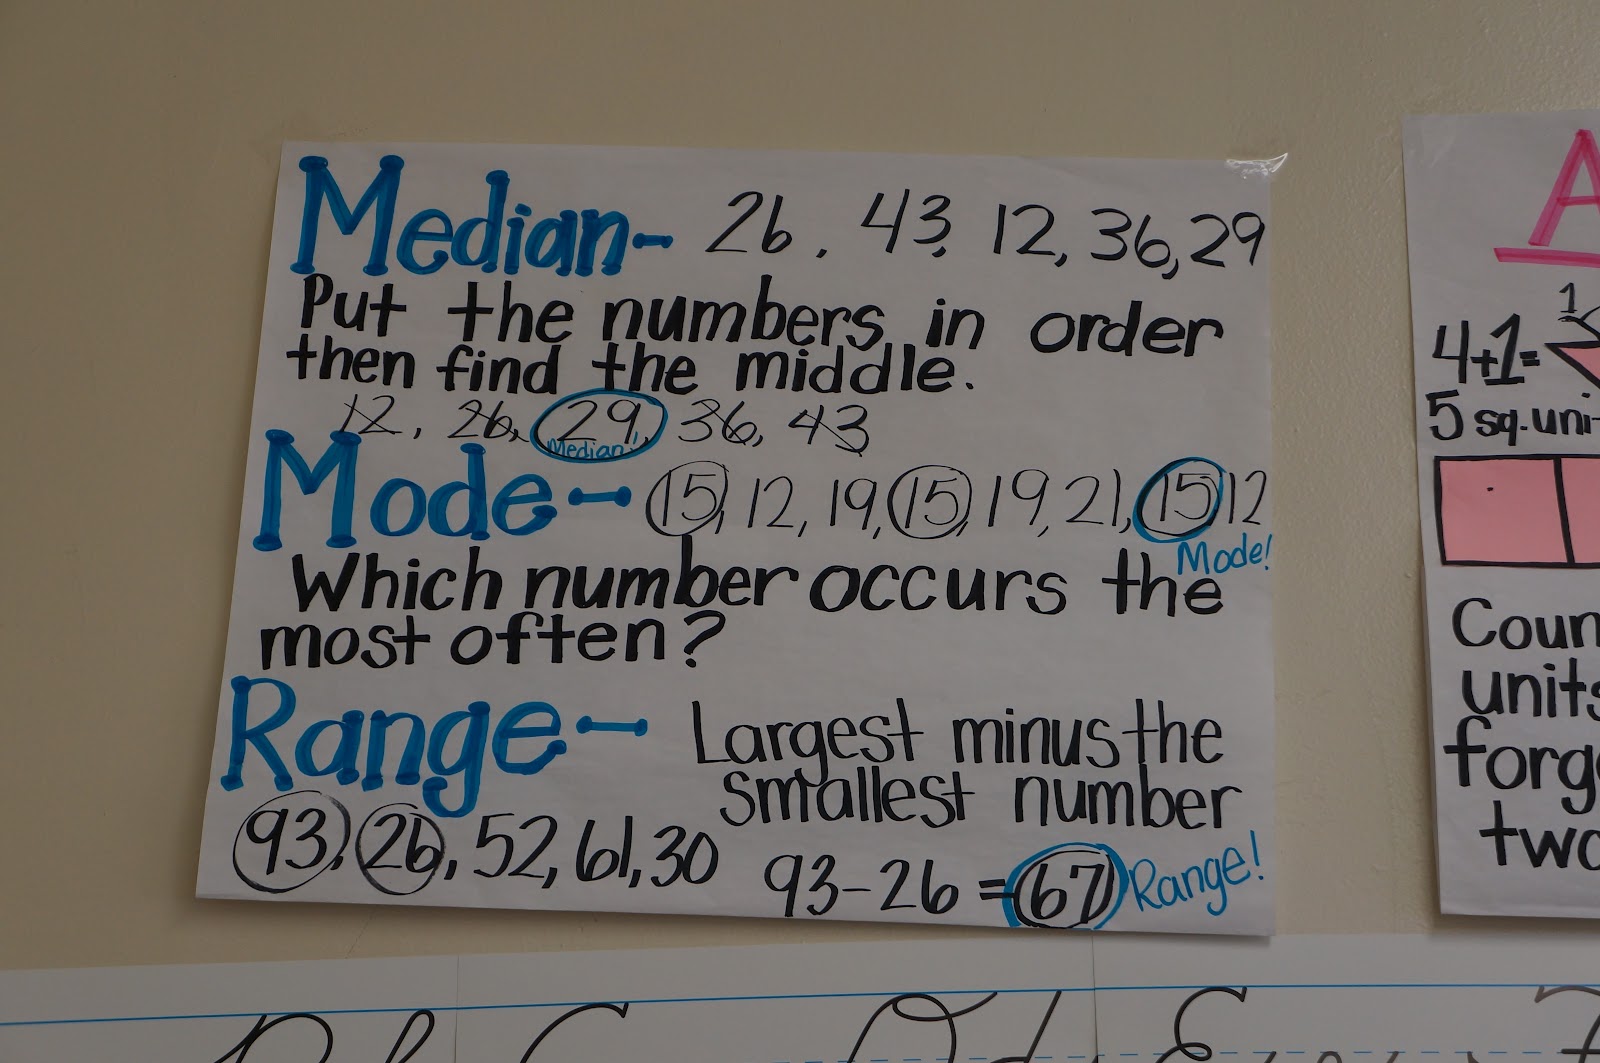 Median- 26, 43, 12, 36, 29
Put the numbers in order
then find the middle.
12, 26, 29, 36, 43
Median
Mode- 15, 12, 19, 15, 19, 21, 15, 12
Mode!
Which number occurs the
most often?
Range- Largest minus the
smallest number
93, 26, 52, 61, 30
93-26=67 Range!
A
1
4+1=
5 sq. uni
Coun
units
forg
two